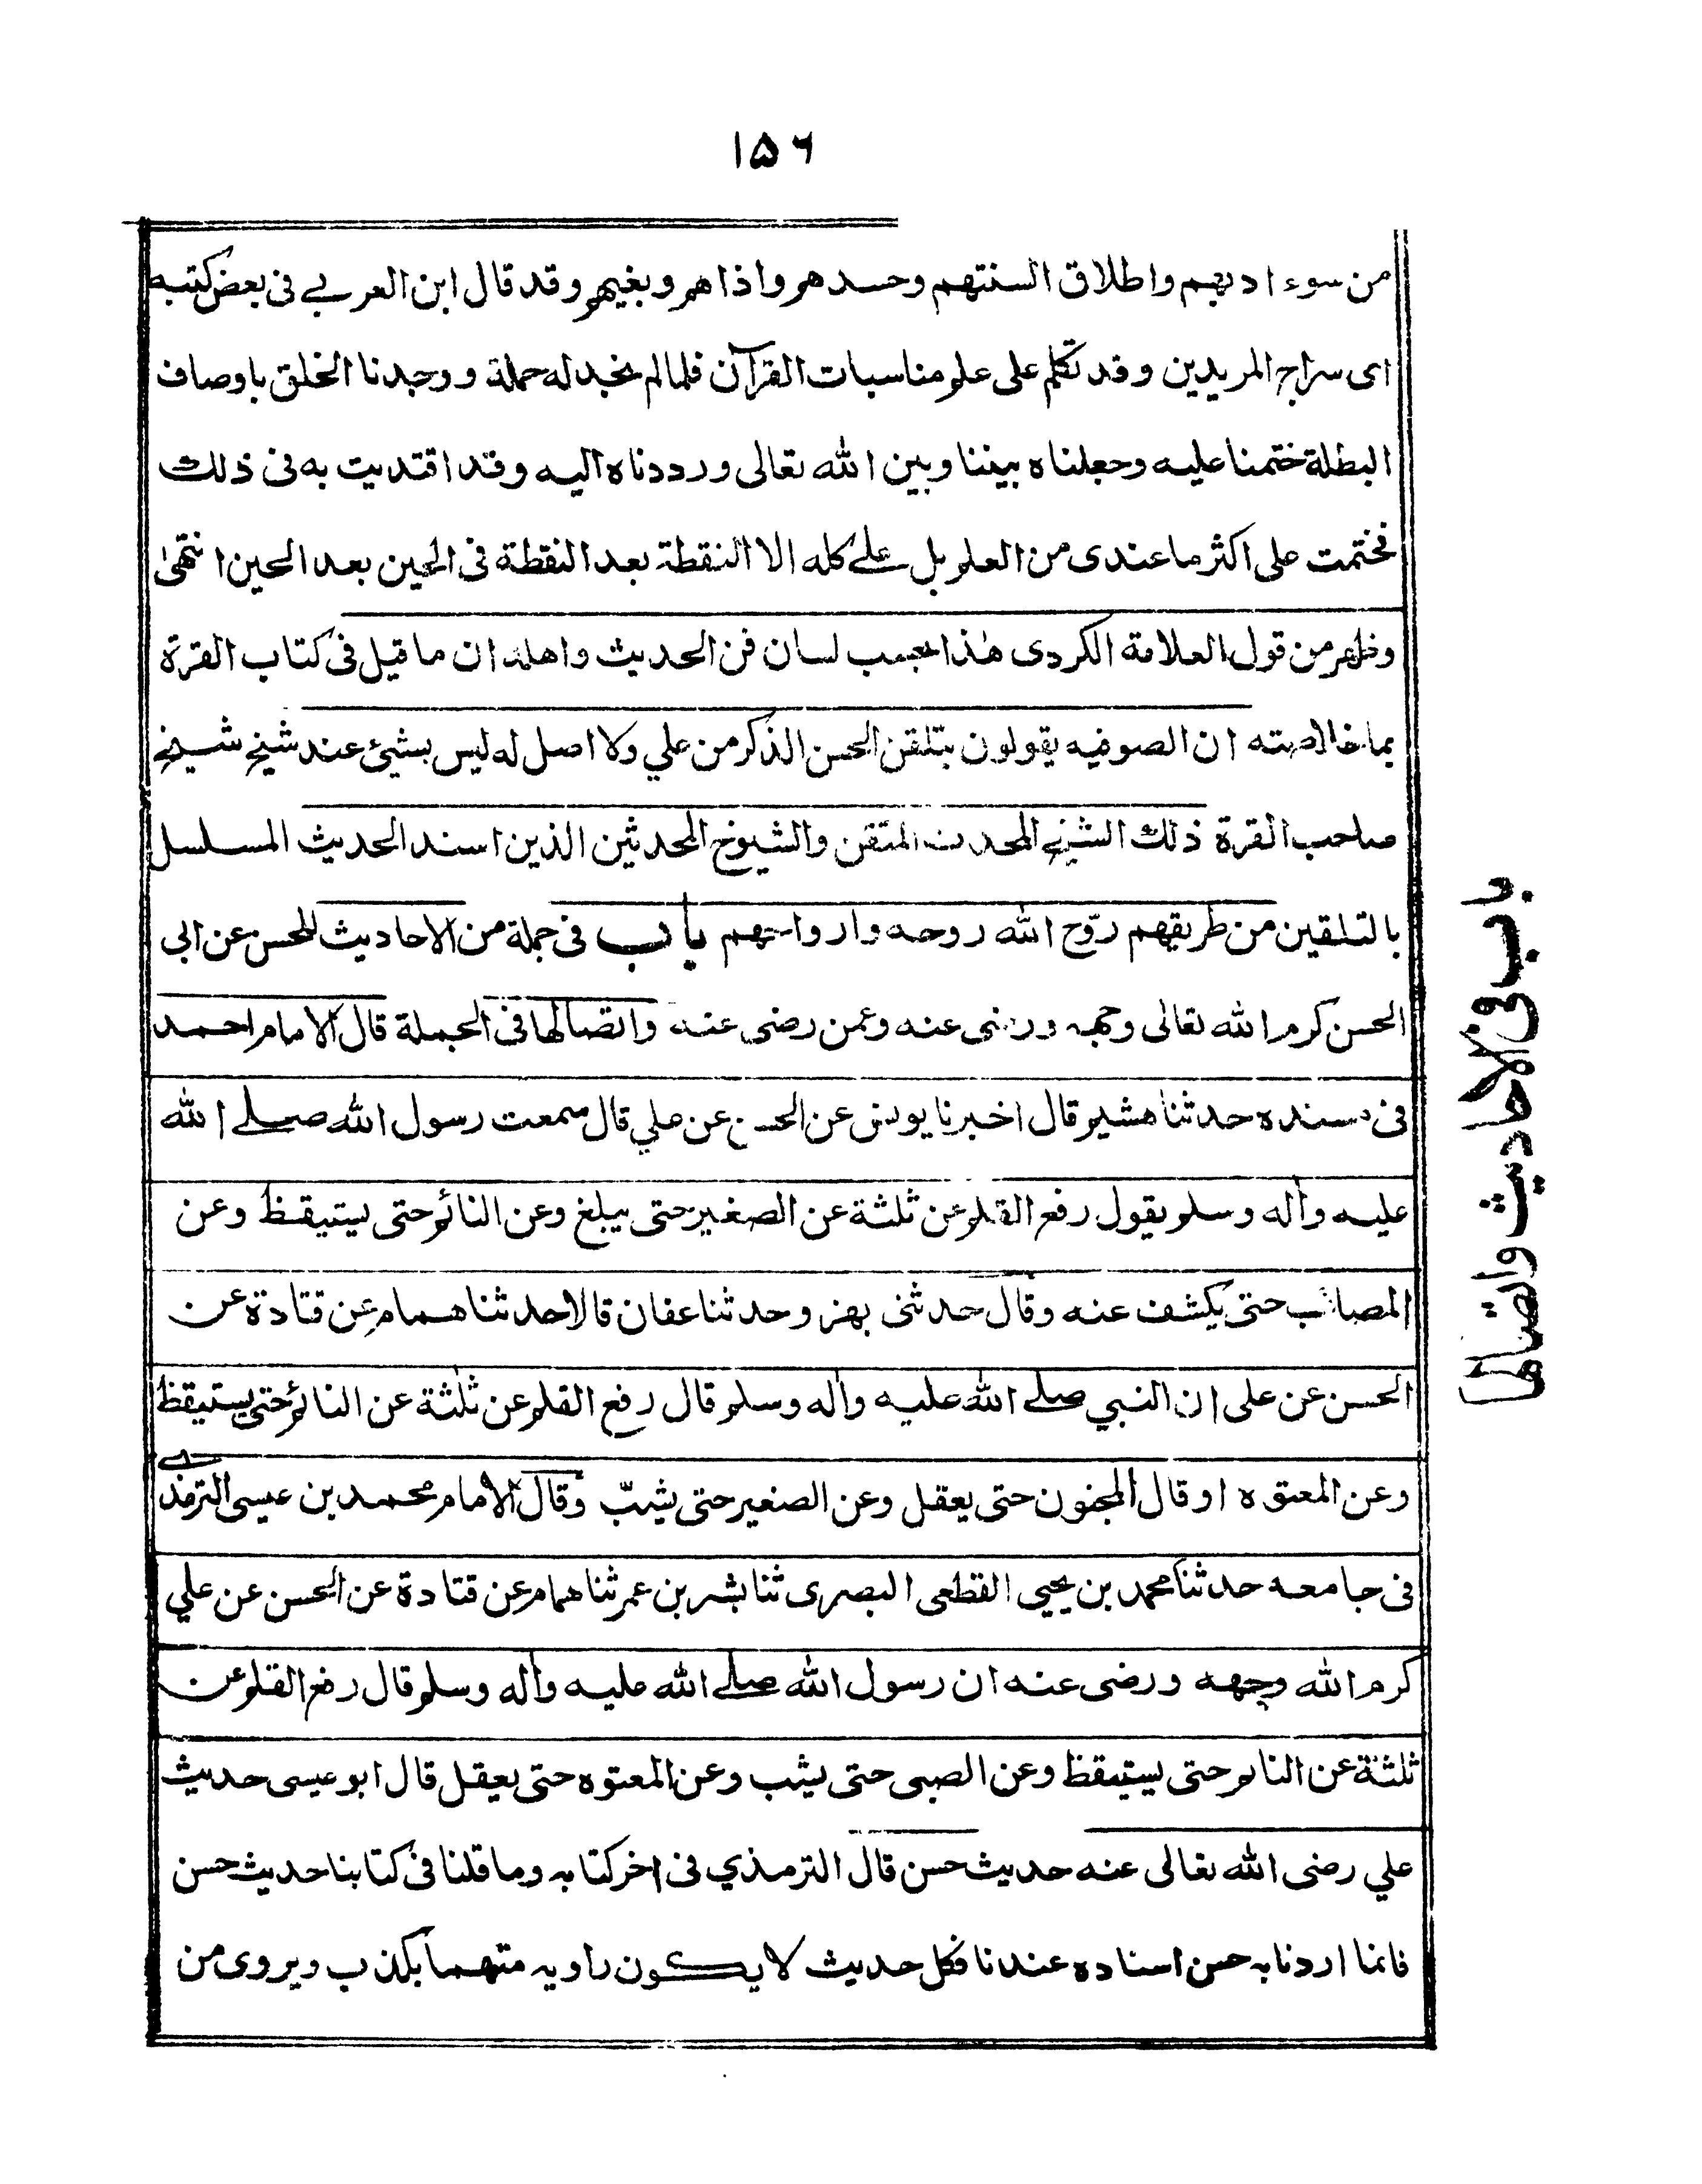 ١٥٦
من سوء ادبهم واطلاق السنتهم وحسدهم واذاهم وبغيهم وقد قال ابن العربي فى بعض كتبه
اى سراج المريدين وقد تكلم على علم مناسبات القرآن فلما لم نجد له حملة ووجدنا الخلق باوصاف
البطلة ختمنا عليه وجعلناه بيننا وبين الله تعالى ورددناه اليه وقد اقتديت به فى ذلك
فختمت على اكثر ما عندى من العلم بل على كله الا النقطة بعد النقطة فى الحين بعد الحين انتهى
وظهر من قول العلامة الكردى هذا بحسب لسان فن الحديث واهله ان ما قيل فى كتاب القرة
بما خلاصته ان الصوفيه يقولون بتلقن الحسن الذكر من علي ولا اصل له ليس بشئ عند شيخ شيخ
صاحب القرة ذلك الشيخ المحدث المتقن والشيوخ المحدثين الذين اسند الحديث المسلسل
بالتلقين من طريقهم روّح الله روحه وارواحهم باب فى جملة من الاحاديث للحسن عن ابى
الحسن كرم الله تعالى وجهه ورضى عنه وعمن رضى عنه واتصالها فى الجملة قال الامام احمد
فى مسنده حدثنا هشيم قال اخبرنا يونس عن الحسن عن علي قال سمعت رسول الله صلى الله
عليه وآله وسلم يقول رفع القلم عن ثلثة عن الصغير حتى يبلغ وعن النائم حتى يستيقظ وعن
المصاب حتى يكشف عنه وقال حدثنى بهز وحدثنا عفان قالا حدثنا همام عن قتادة عن
الحسن عن على ان النبي صلى الله عليه وآله وسلم قال رفع القلم عن ثلثة عن النائم حتى يستيقظ
وعن المعتوه او قال المجنون حتى يعقل وعن الصغير حتى يشبّ وقال الامام محمد بن عيسى الترمذى
فى جامعه حدثنا محمد بن يحيى القطعى البصرى ثنا بشر بن عمر ثنا همام عن قتادة عن الحسن عن علي
كرم الله وجهه ورضى عنه ان رسول الله صلى الله عليه وآله وسلم قال رفع القلم عن
ثلثة عن النائم حتى يستيقظ وعن الصبى حتى يشب وعن المعتوه حتى يعقل قال ابو عيسى حديث
علي رضى الله تعالى عنه حديث حسن قال الترمذي فى اخر كتابه وما قلنا فى كتابنا حديث حسن
فانما اردنا به حسن اسناده عندنا فكل حديث لا يكون راويه متهما بكذب ويروى من
باب فى الاحاديث واتصالها